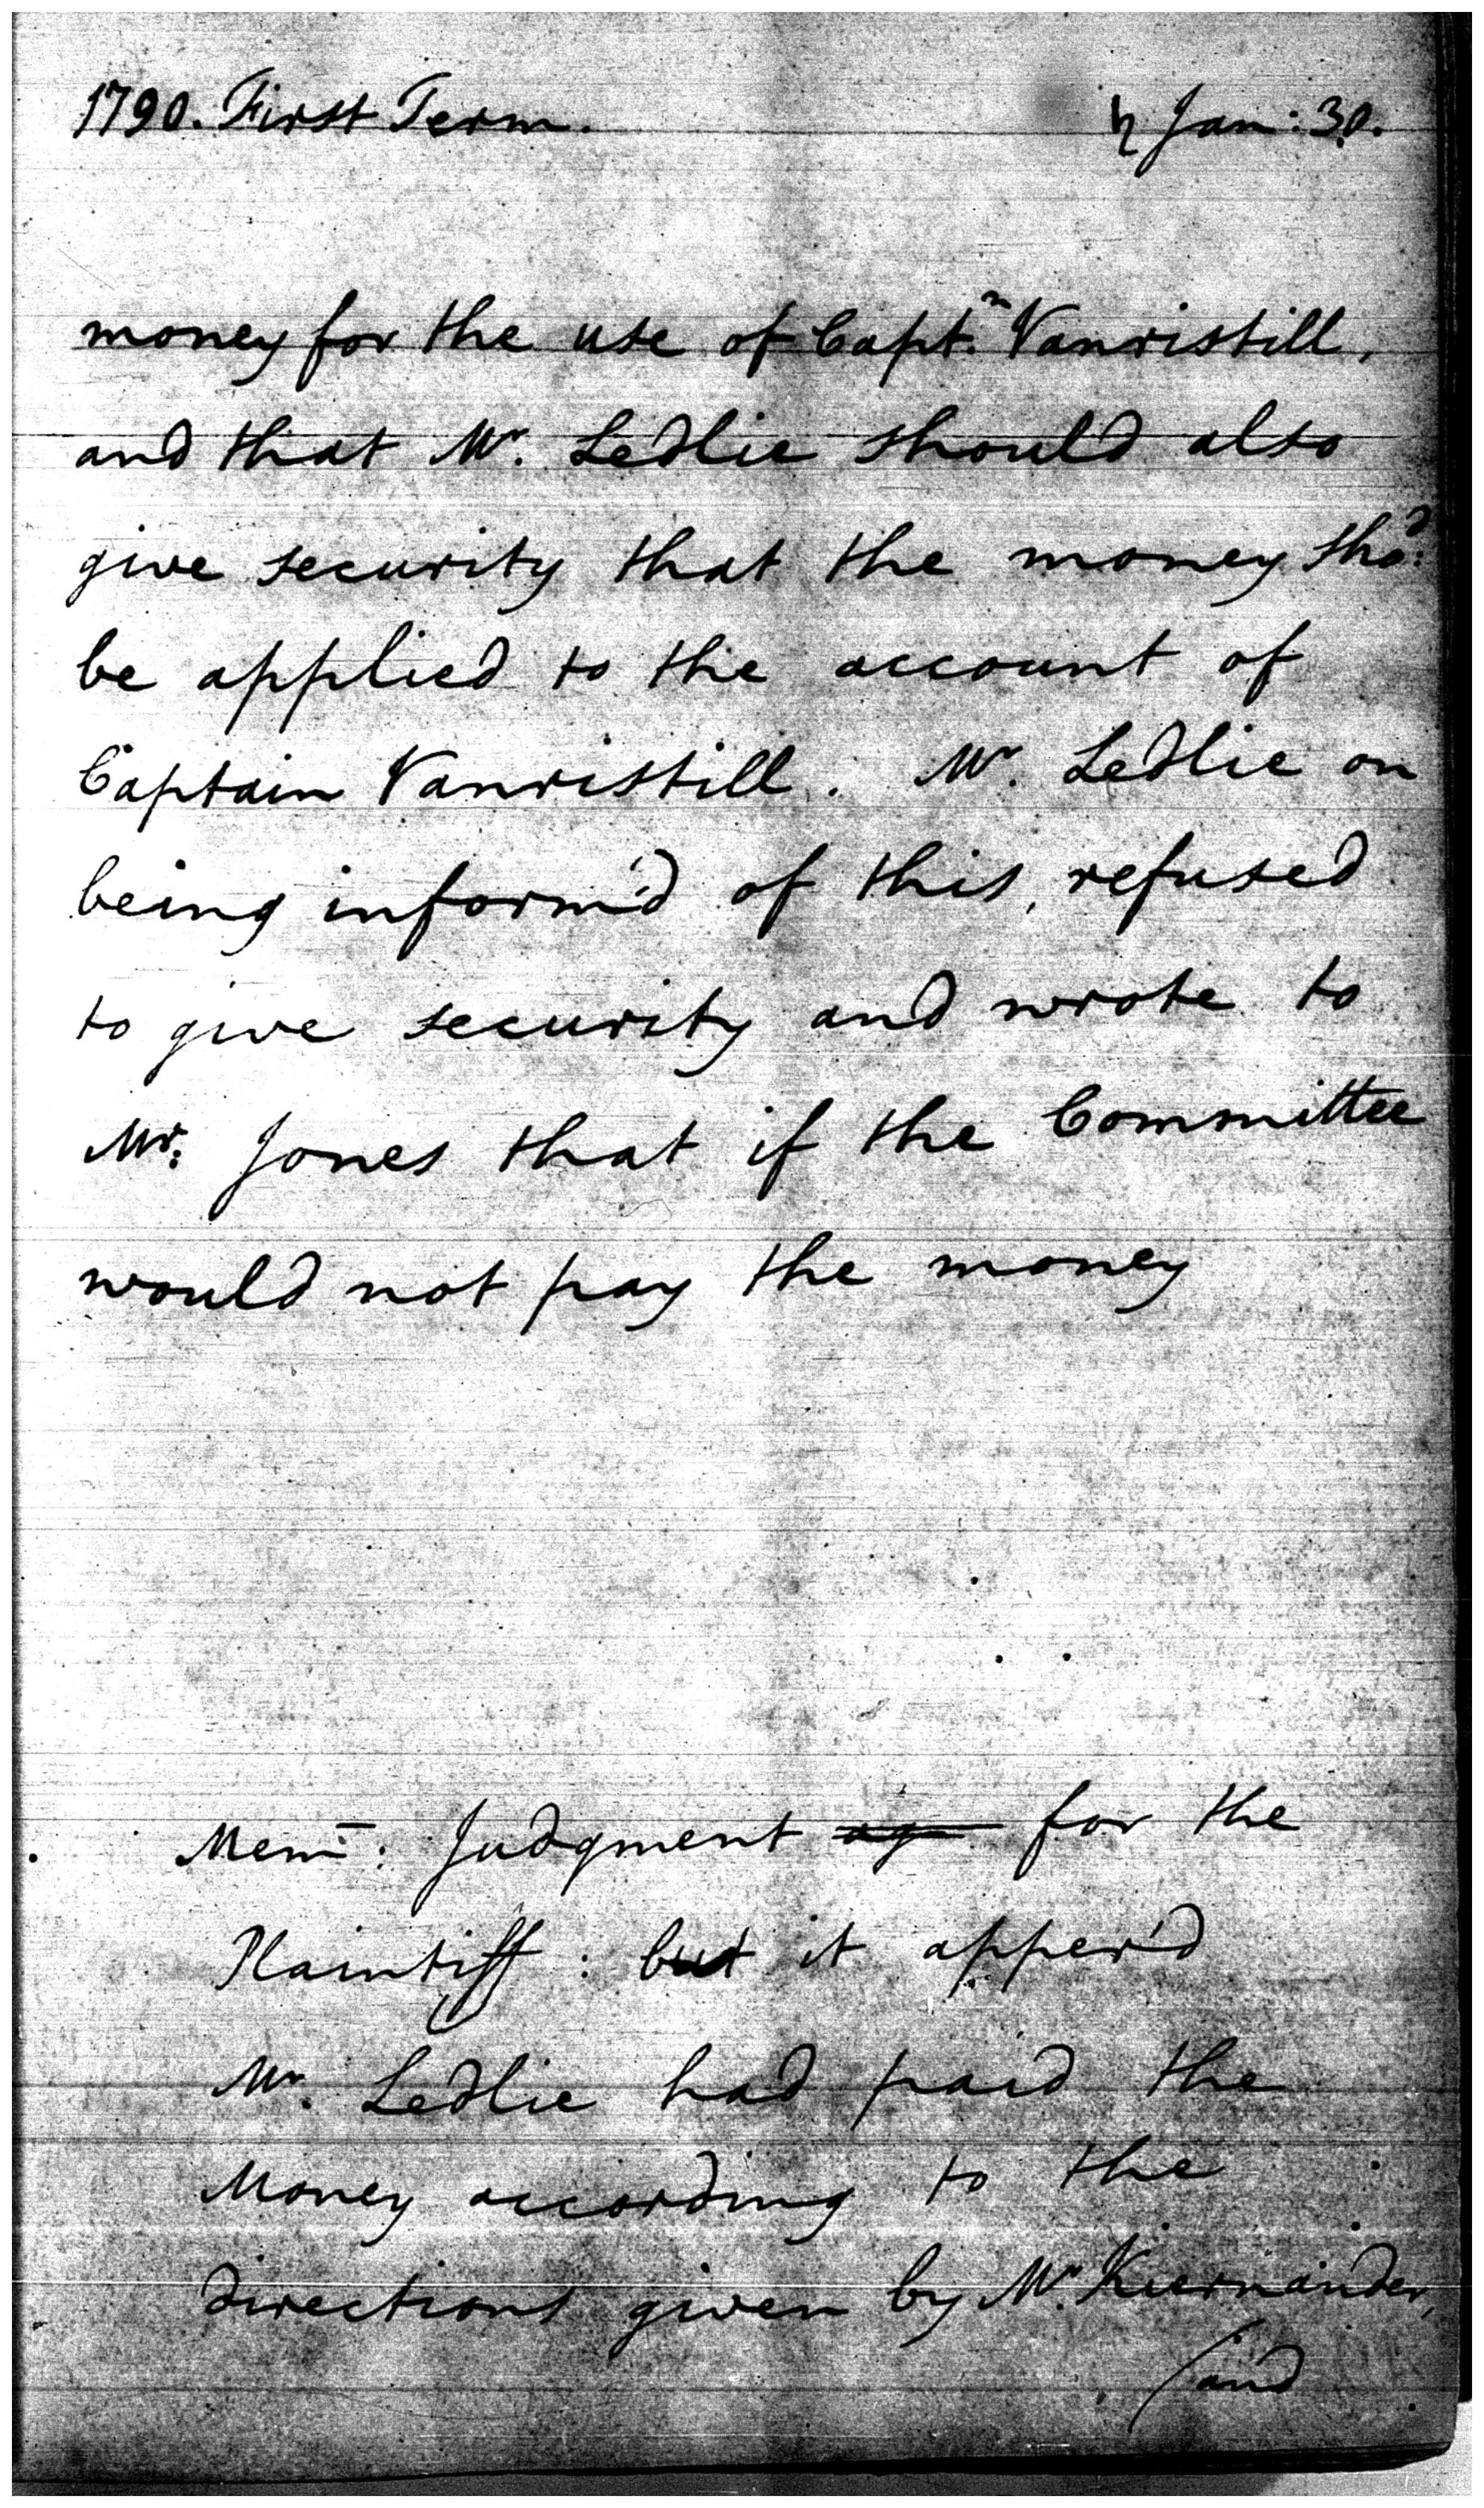 1790. First Term. ♄ Jan: 30.
money for the use of Capt.n Vanristill,
and that Mr. Ledlie should also
give security that the money sho.d
be applied to the account of
Captain Vanristill. Mr. Ledlie on
being inform'd of this, refused
to give security and wrote to
Mr. Jones that if the Committee
would not pay the money
Mem̅: Judgment ag for the
Plaintiff: but it apper'd
Mr. Ledlie had paid the
Money according to the
directions given by Mr. Kiernander,
(and